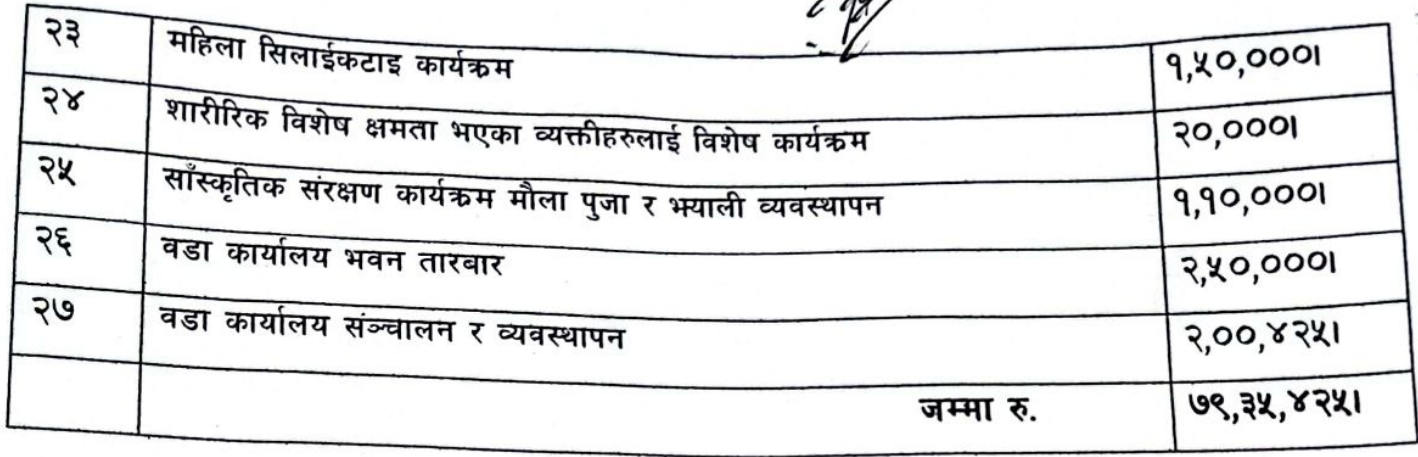 २३ महिला सिलाईकटाइ कार्यक्रम १,५०,०००।
२४ शारीरिक विशेष क्षमता भएका व्यक्तीहरुलाई विशेष कार्यक्रम २०,०००।
२५ साँस्कृतिक संरक्षण कार्यक्रम मौला पुजा र भ्याली व्यवस्थापन १,१०,०००।
२६ वडा कार्यालय भवन तारबार २,५०,०००।
२७ वडा कार्यालय संञ्चालन र व्यवस्थापन २,००,४२५।
जम्मा रु. ७९,३५,४२५।